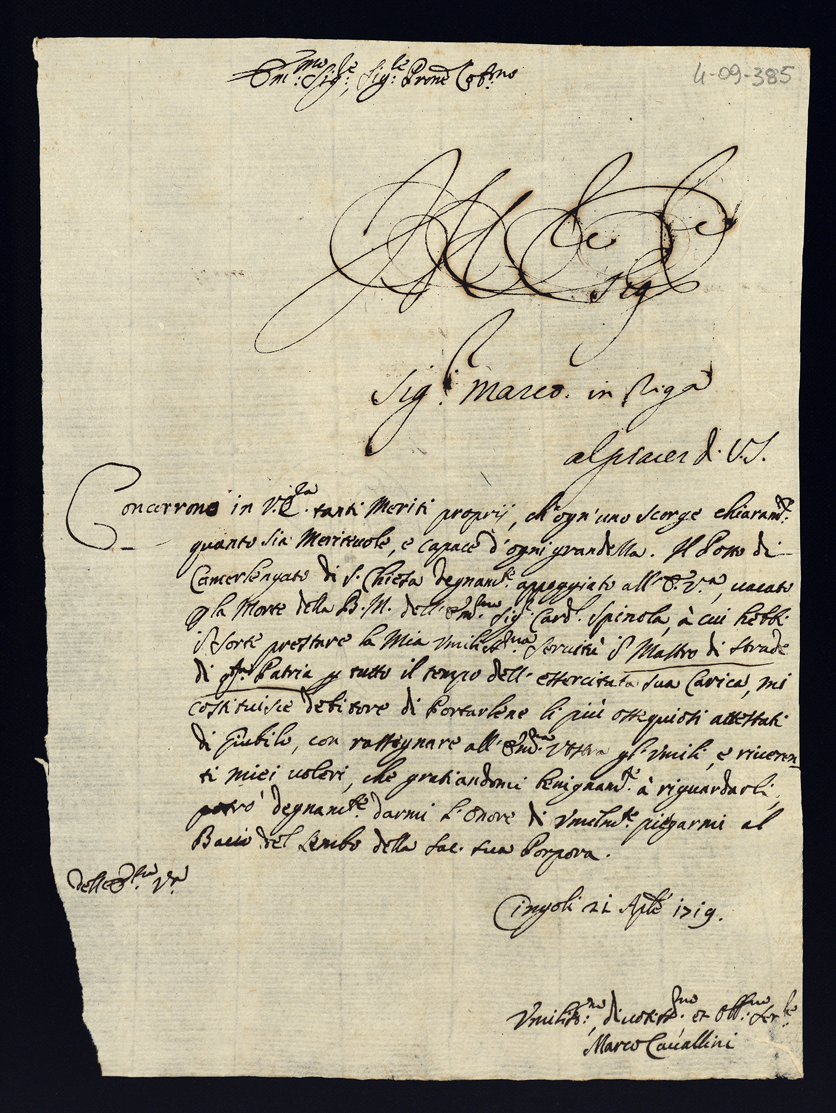 Em.mo Sig.re, Sig.re Prone Col.mo
4-09-385
Sig
Sig.r Marco in Riga
al piacer di V.S.
Concorrono in V.E.za tanti Meriti proprij, ch'ogn'uno scorge chiaram.te
quanto sia Meriteuole, e capace d'ogni grandezza. Il Posto di
Camerlengato di S. Chiesa degnam.te appoggiato all'E.V.a, uacato
p la Morte della B.M. dell'Em.mo Sig.r Card. Spinola, à cui hebbi
sorte prestare la Mia Vmiliss.ma seruitù Mastro di Strade
di Patria p tutto il tempo dell'essercitata sua Carica, mi
costituisce debitore di Portarlene li più ossequiosi attestati
di Giubilo, con rassegnare all'Em.za Vostra gl'Vmili, e riueren
ti miei uoleri, che gratiandomi benignam.te à riguardarli,
potrò degnam.te darmi l'Onore di Vmilm.te piegarmi al
Bacio del Lembo della Sac. sua Porpora.
Dell'E.za V.a
Cingoli 21 Aple 1719.
Vmiliss.mo, diuotiss.mo et Obb.mo Ser.re
Marco Cauallini